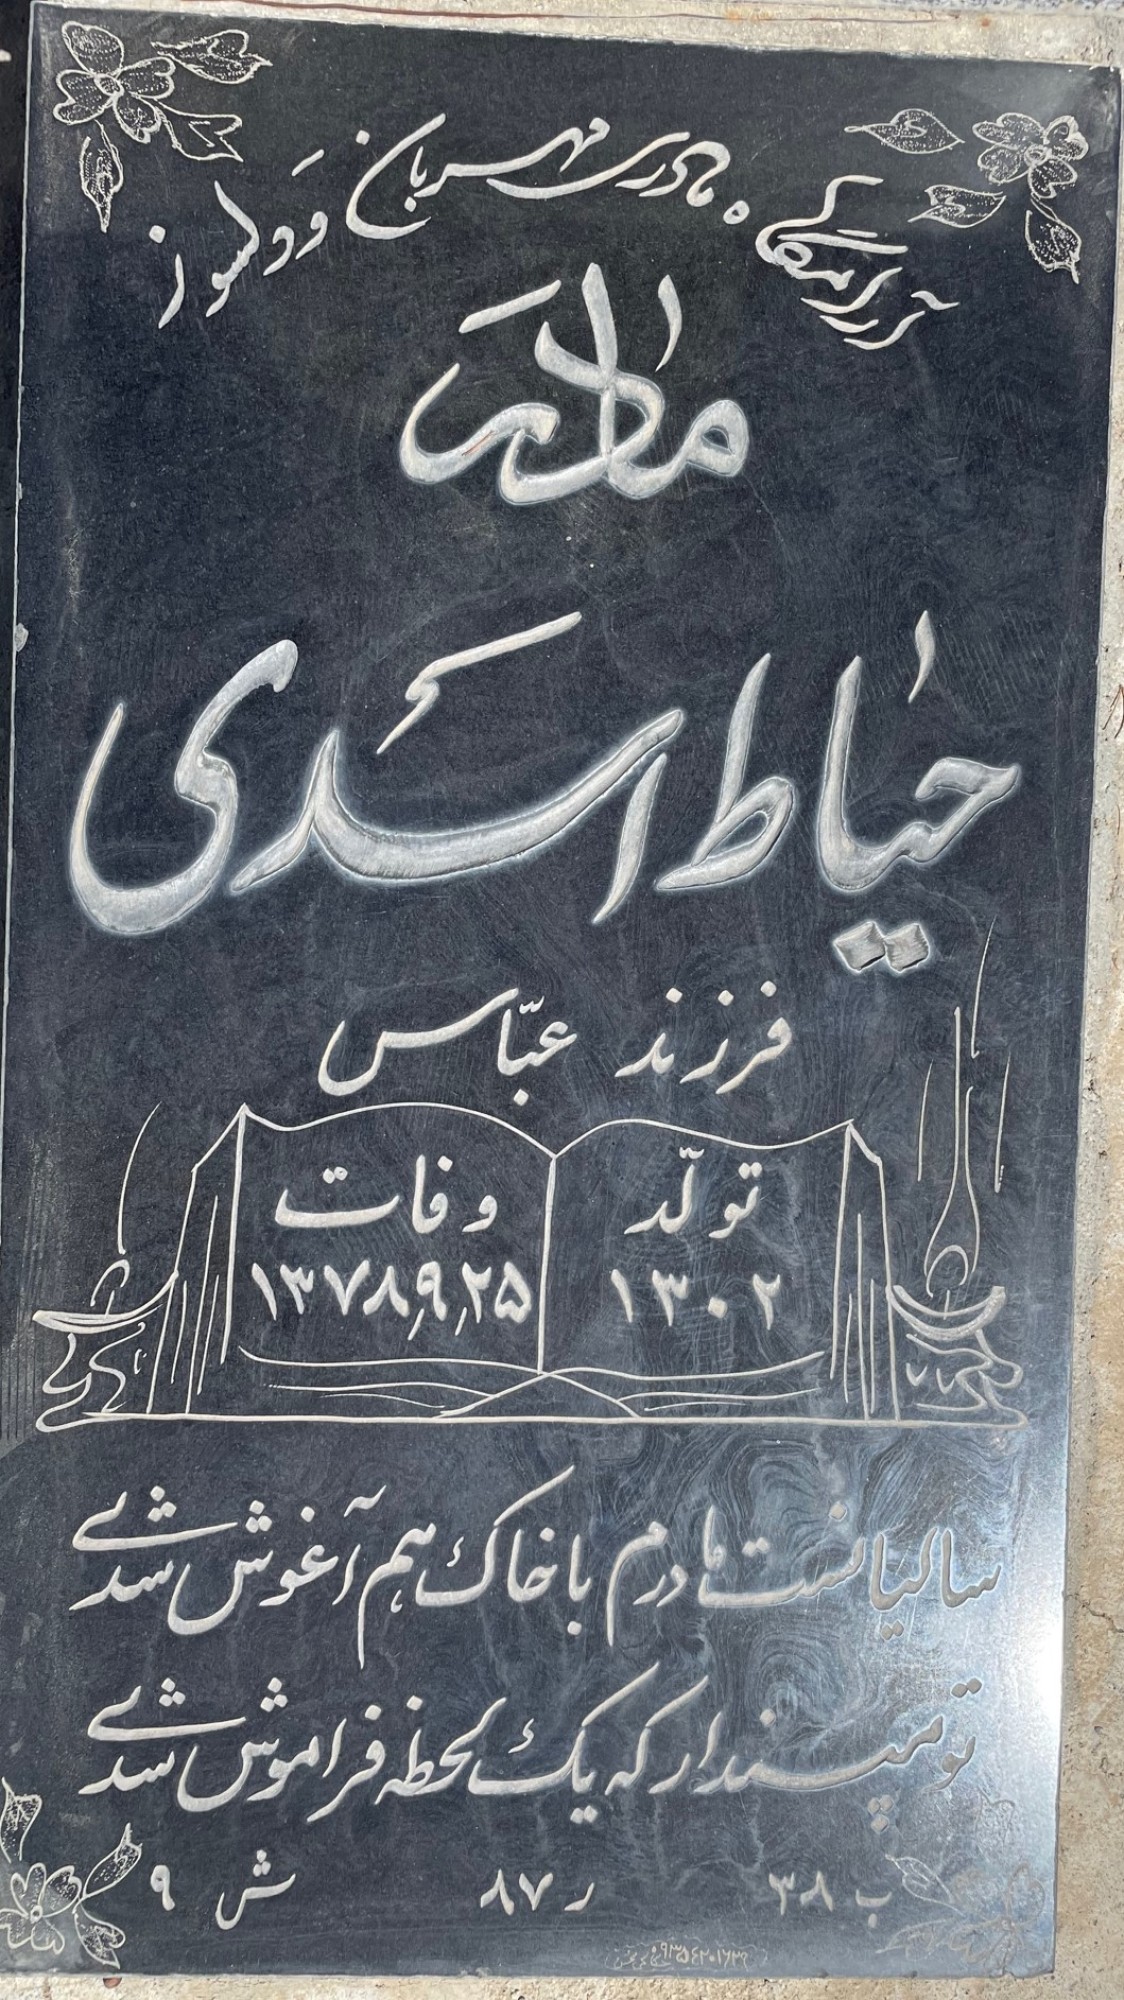 آرامگاه مادری مهربان و دلسوز
مادر
حیاط اسدی
فرزند عباس
تولّد
۱۳۰۲
وفات
۱۳۷۸٫۹٫۲۵
سالیانست مادرم با خاک هم آغوش شدی
تو مپندار که یک لحظه فراموش شدی
ب ۳۸ ر ۸۷ ش ۹